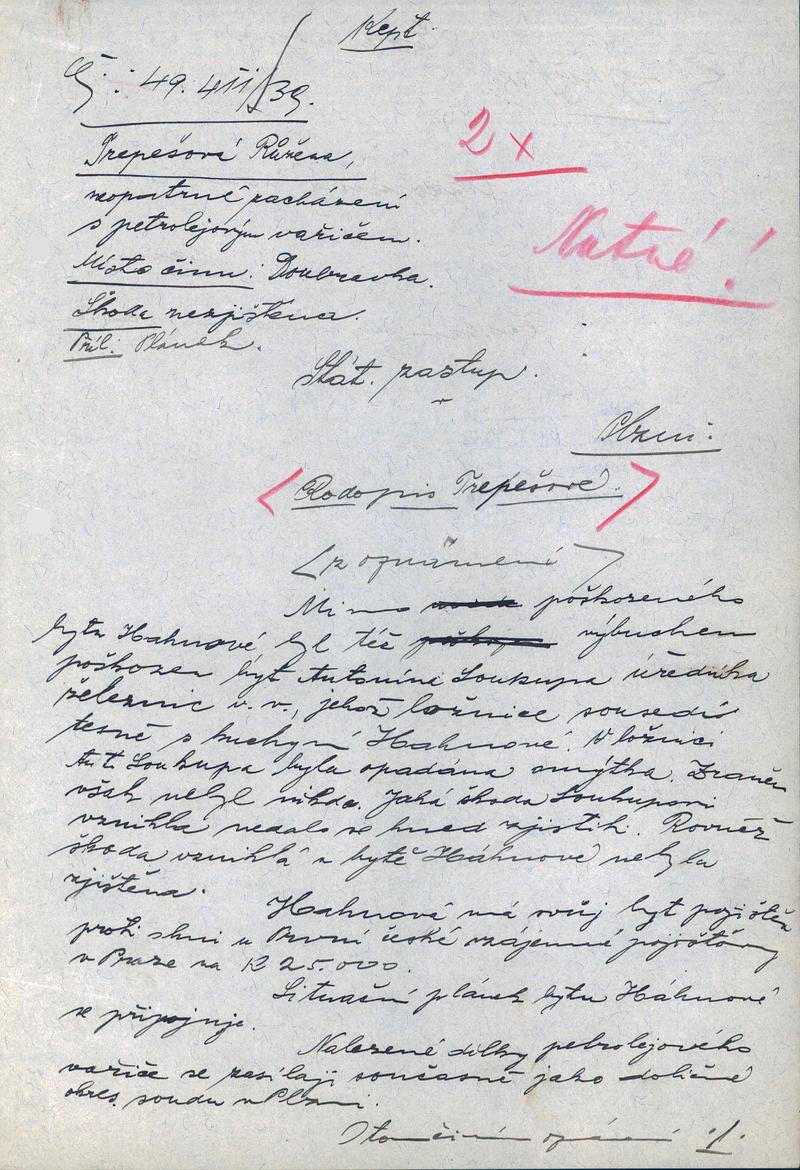 Kept.
Čj.: 49.411/39.
2 x
Trepešová Růžena,
neopatrné zacházení
s petrolejovým vařičem.
Nutné!
Místo činu: Doubravka.
Škoda nezjištěna.
Příl: Plánek.
Stát. zastup.
v
Plzni.
< Rodopis Trepešové. >
< z oznámení >
Mimo poškozeného
bytu Hahnové byl též výbuchem
poškozen byt Antonína Soukupa úředníka
železnic v. v., jehož ložnice sousedí
těsně s kuchyní Hahnové. V ložnici
Ant. Soukupa byla opadána omýtka. Zraněn
však nebyl nikdo. Jaká škoda Soukupovi
vznikla nedalo se hned zjistiti. Rovněž
škoda vzniklá v bytě Hahnové nebyla
zjištěna.
Hahnová má svůj byt pojištěn
proti ohni u První české vzájemné pojišťovny
v Praze na K 25.000.
Situační plánek bytu Háhnové
se připojuje.
Nalezené dílky petrolejového
vařiče se zasílají současně jako doličné
okres. soudu v Plzni.
O tom činím oznámení ./.